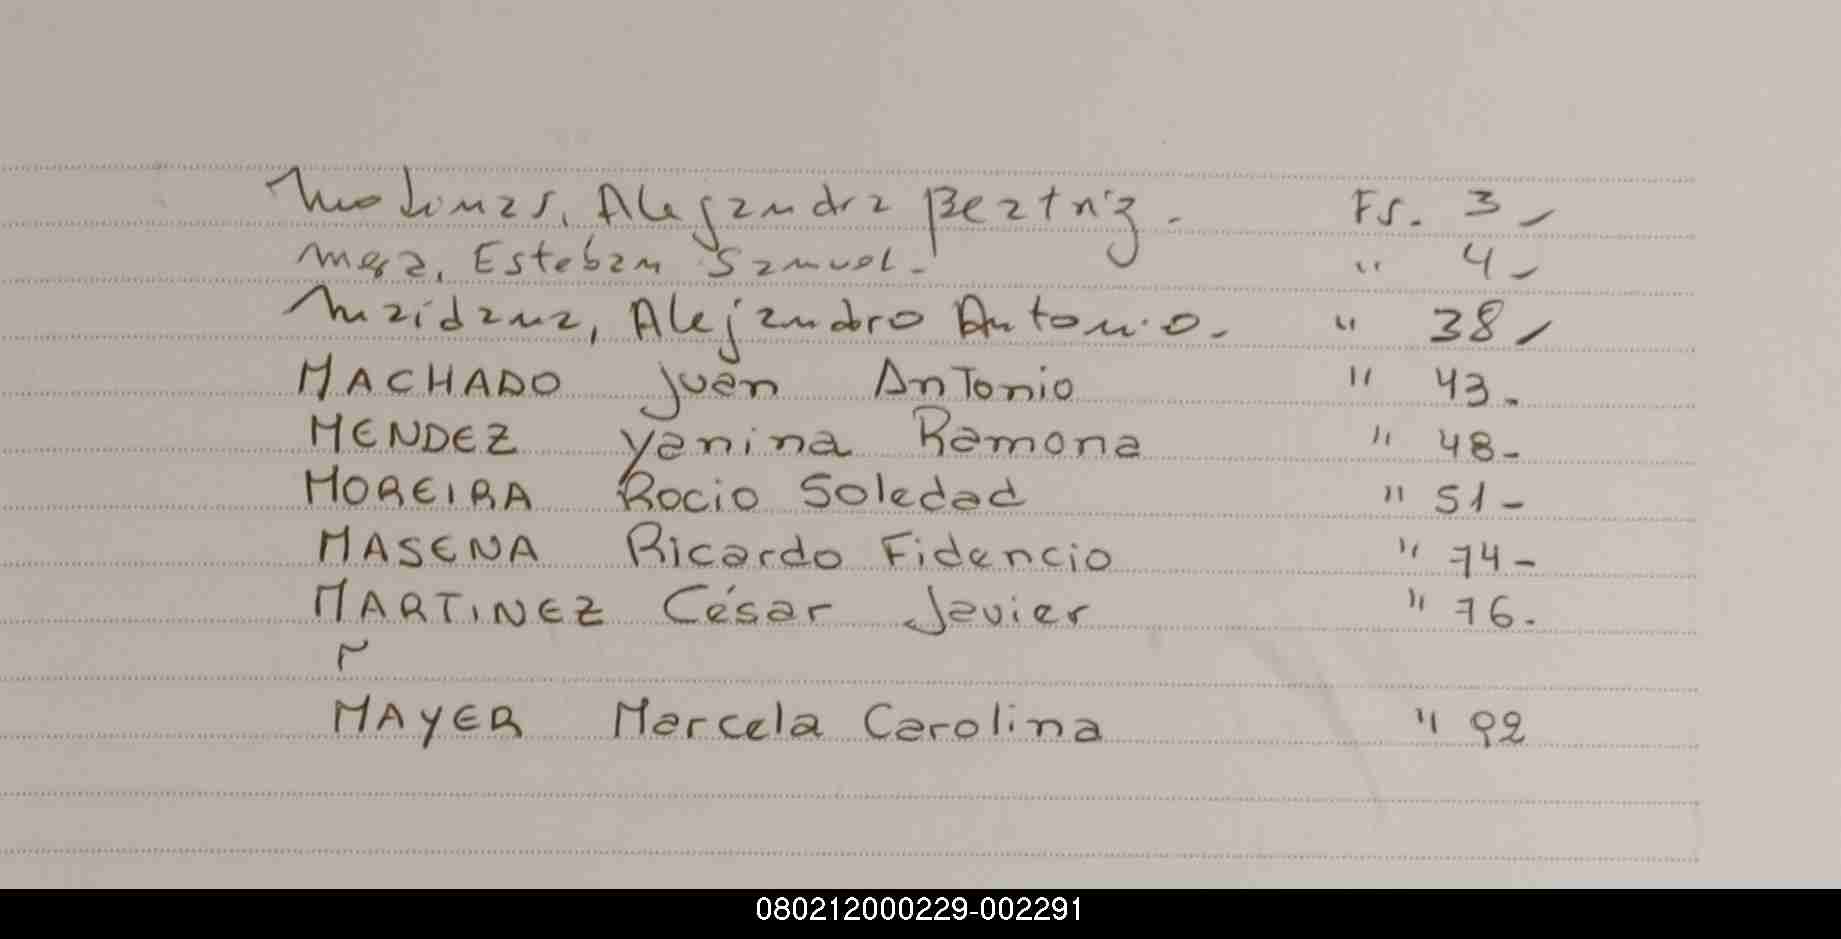 Molinas, Alejandra Beatriz. Fs. 3-
Meza, Esteban Samuel. " 4-
Maidana, Alejandro Antonio. " 38-
MACHADO Juan Antonio " 43.
MENDEZ Yanina Ramona " 48-
MOREIRA Rocio Soledad " 51-
MASENA Ricardo Fidencio " 74-
MARTINEZ César Javier " 76.
MAYER Marcela Carolina " 92
080212000229-002291